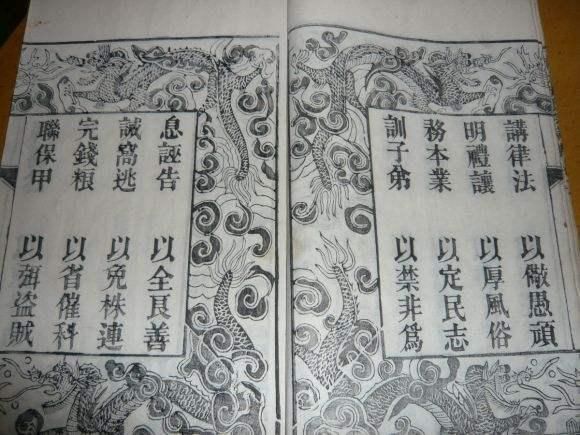 講律法 以儆愚頑
明禮讓 以厚風俗
務本業 以定民志
訓子弟 以禁非爲
息誣告 以全良善
誡窩逃 以免株連
完錢粮 以省催科
聯保甲 以弭盗賊